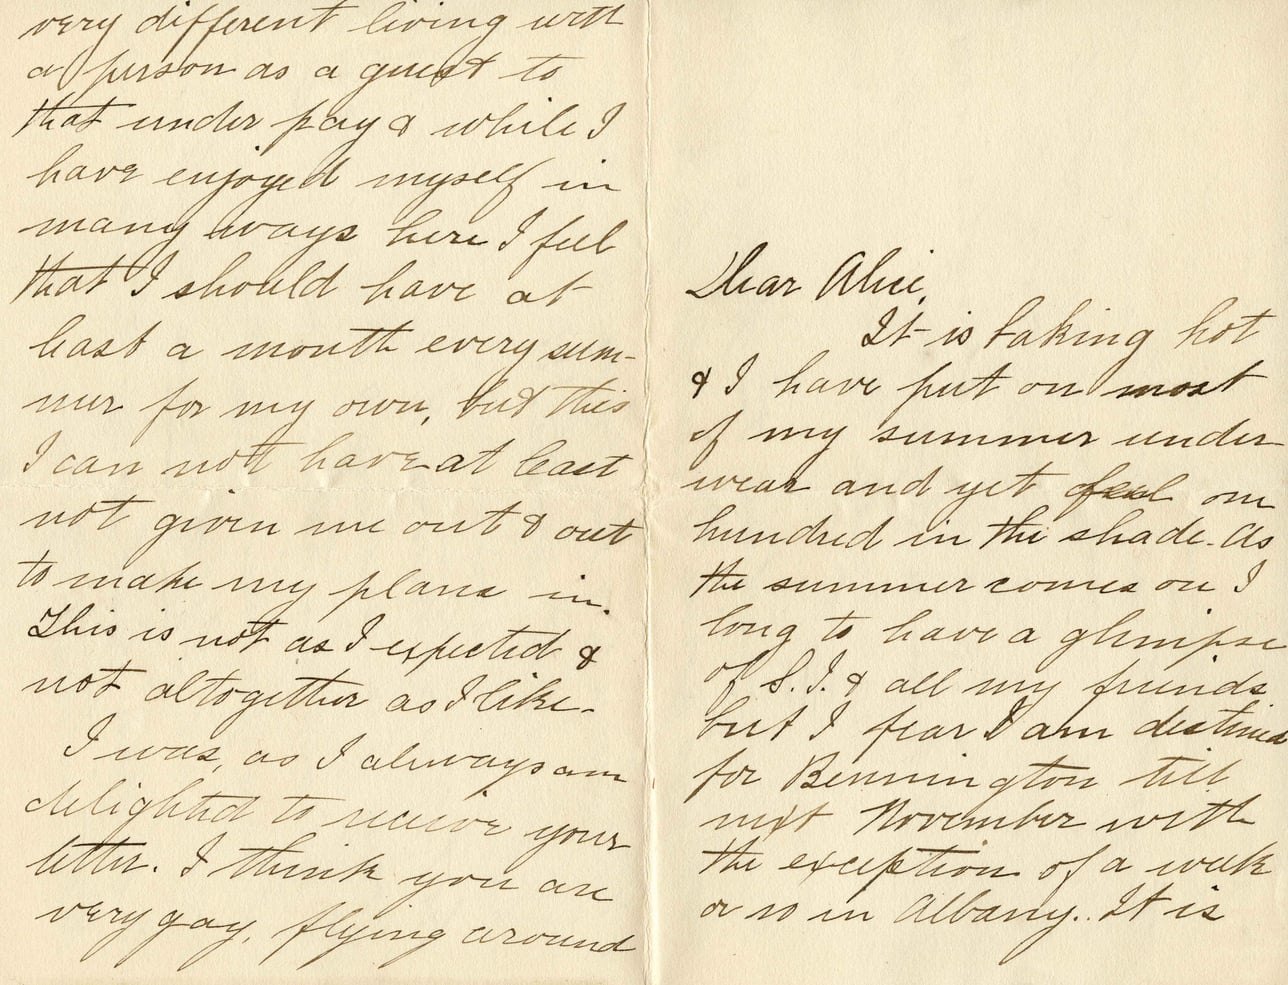 Dear Alice,
It is baking hot
& I have put on most
of my summer under
wear and yet feel one
hundred in the shade. As
the summer comes on I
long to have a glimpse
of S.I. & all my friends
but I fear I am destined
for Bennington till
next November with
the exception of a week
or so in Albany. It is
very different living with
a person as a guest to
that under pay & while I
have enjoyed myself in
many ways here I feel
that I should have at
least a month every sum-
mer for my own, but this
I can not have at least
not given me out & out
to make my plans in.
This is not as I expected &
not altogether as I like-
I was, as I always am
delighted to receive your
letter. I think you are
very gay, flying around